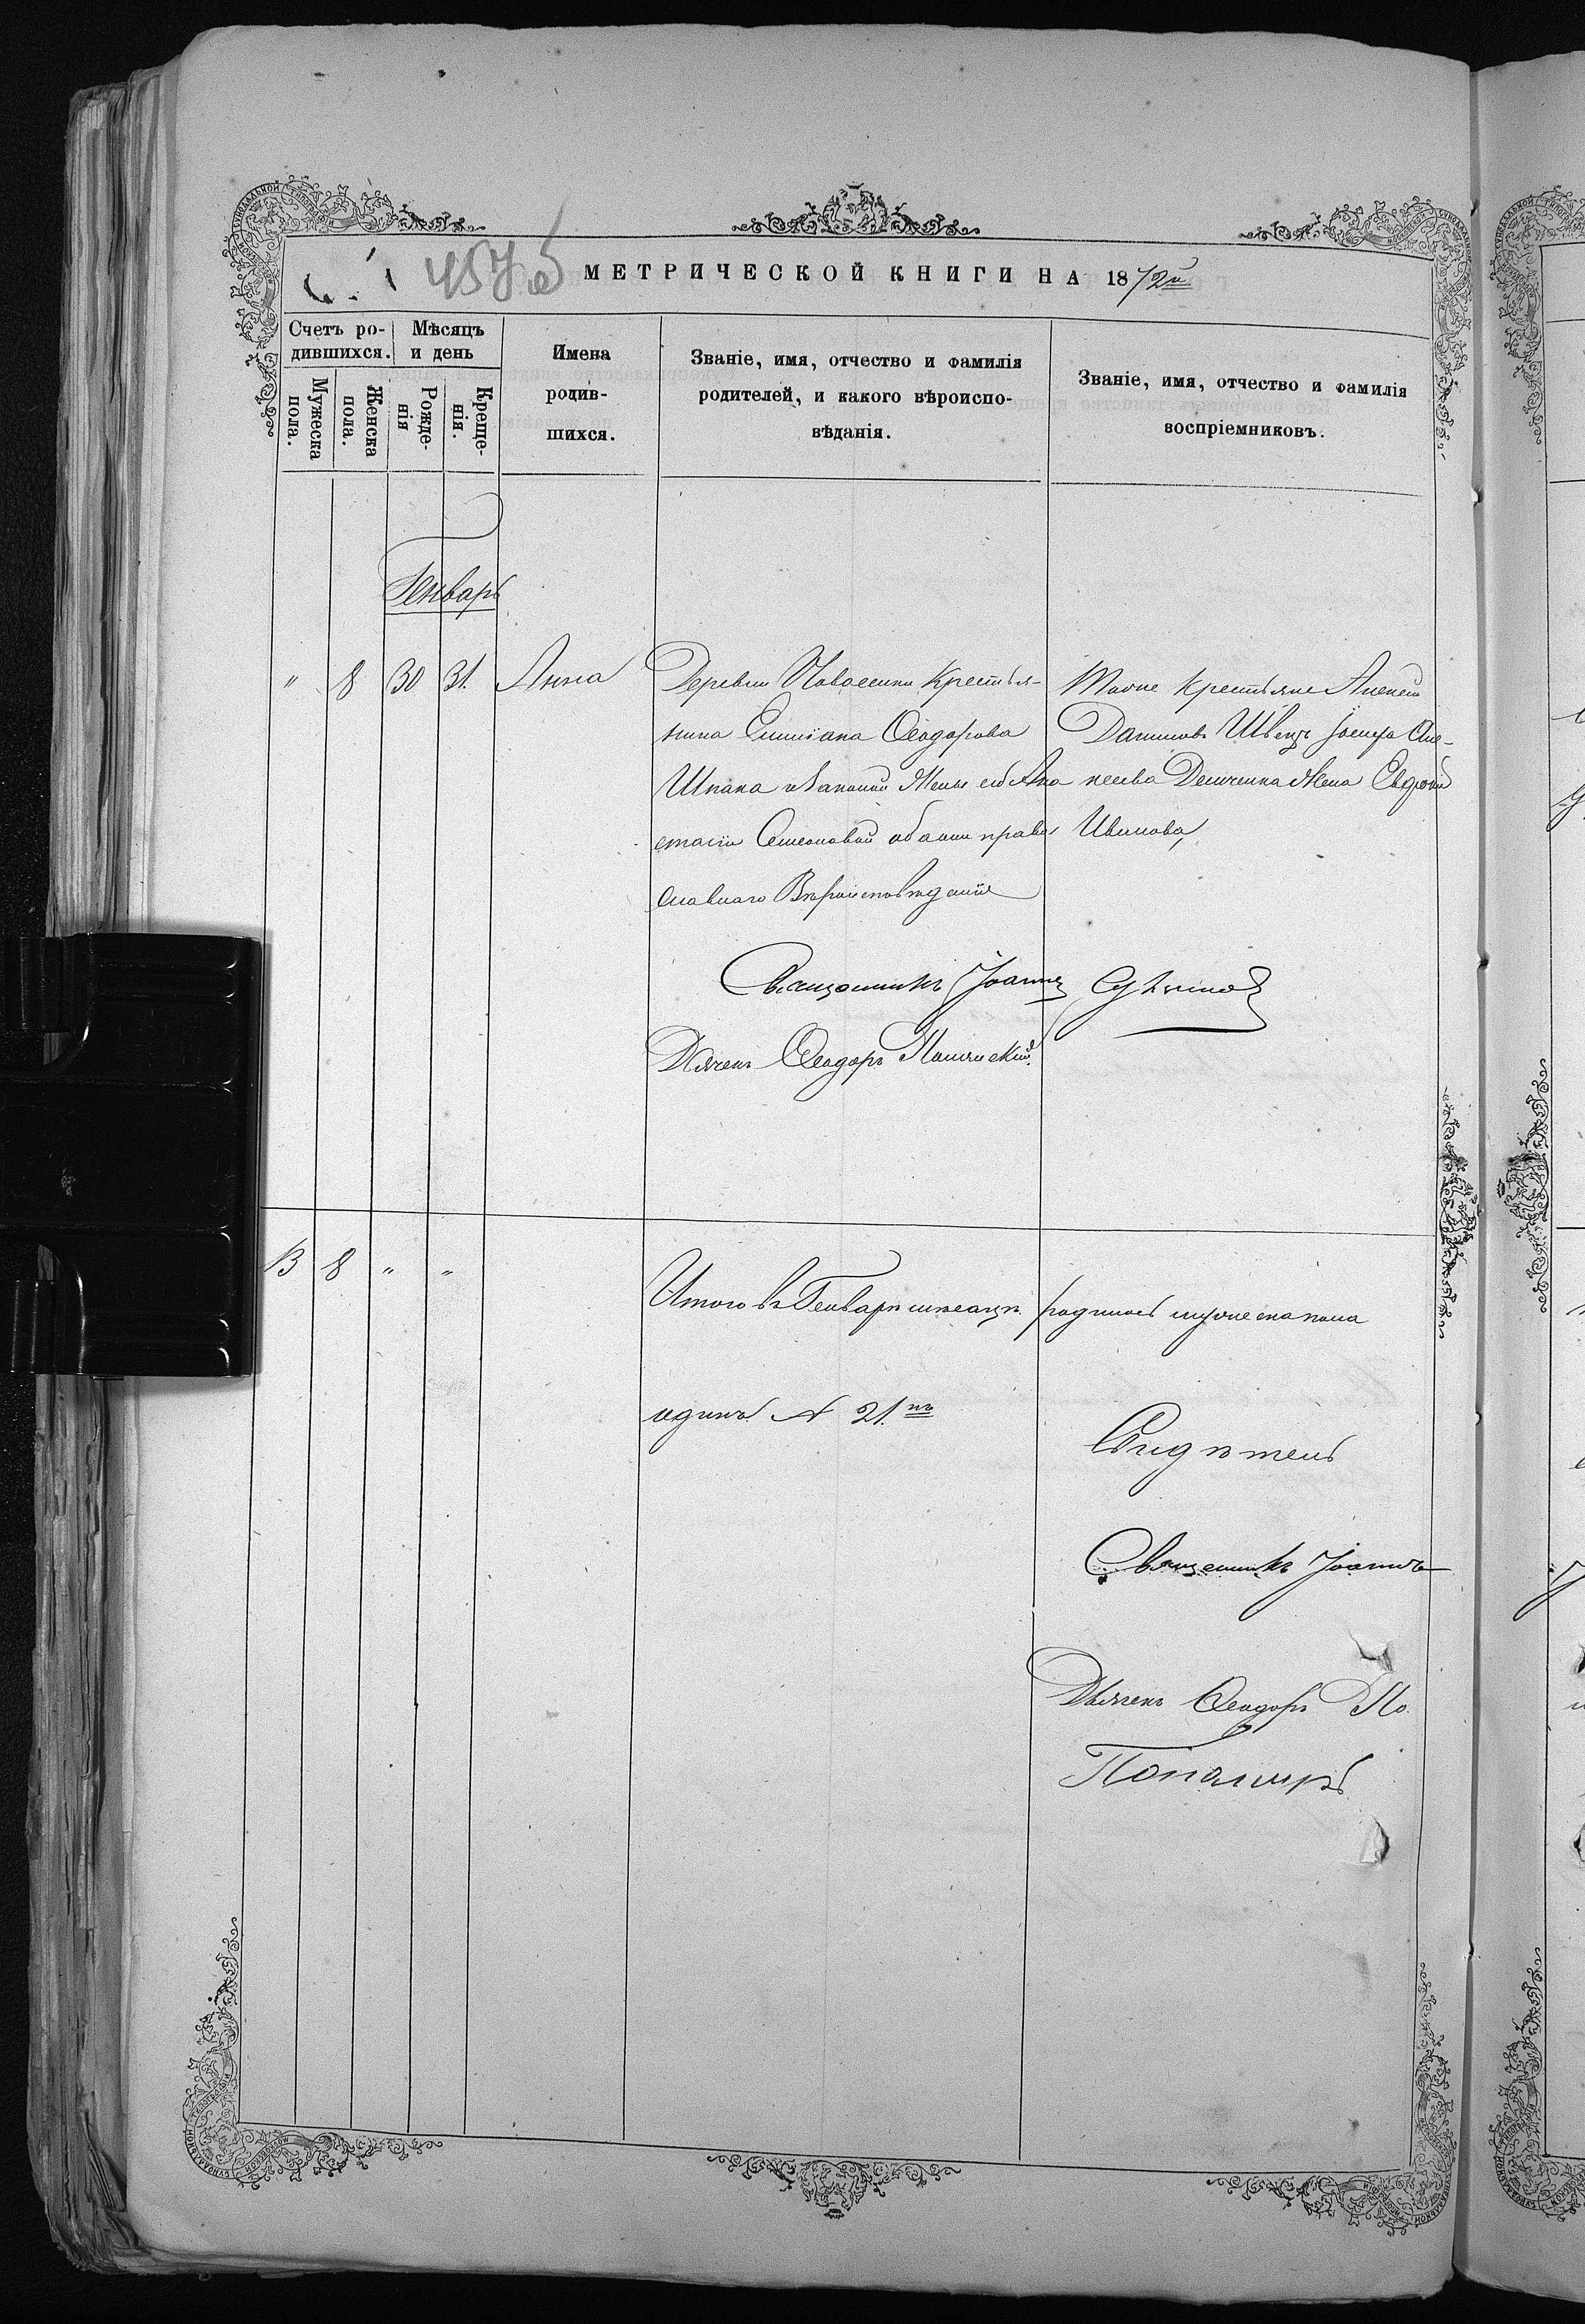 457 об
МЕТРИЧЕСКОЙ КНИГИ НА 1872й
Счетъ ро-
дившихся.
Мужеска
пола.
Женска
пола.
Мѣсяцъ
и день
Рожде-
нія
Креще-
нія.
Имена
родив-
шихся.
Званіе, имя, отчество и фамилія
родителей, и какого вѣроиспо-
вѣданія.
Званіе, имя, отчество и фамилія
воспріемниковъ.
Генварь
" 8 30 31. Анна
Деревни Крестья-
нина Емиліана Ѳеодорова
Шпака и законной Жены его Ана
стасіи Семеновой обаи право
славнаго Вѣроисповѣданія
Тоже Крестьяне Алексѣй
Даниловъ Швецъ Іосифа Але-
ксеева Жена
Иванова,
Священникъ Іоаннъ
Дьячекъ Ѳеодоръ
13 8 " "
Итого въ Генварѣ мѣсяцѣ родилось мужеска пола
одинъ № 21.
Свидѣтель
Священникъ Іоаннъ
Дьячекъ Ѳеодоръ По
Понамарь